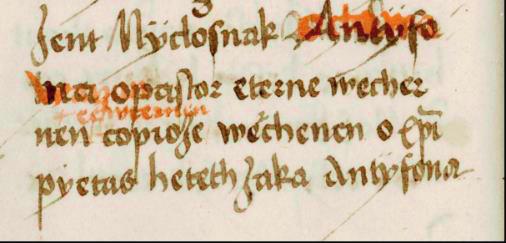 zent Nÿclosnak Antÿfo
na opastor eterne wecher
nen copioze wechenen o xpi
pyetas heteth zaka Antÿfona